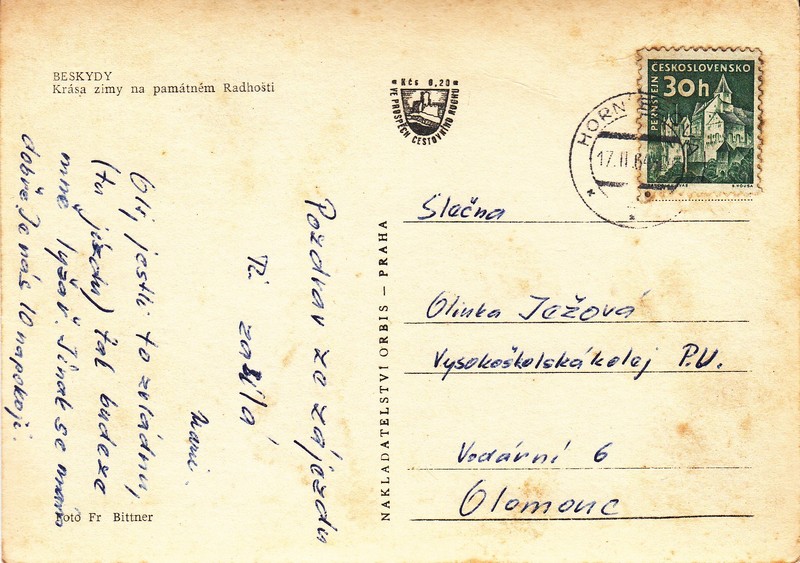 BESKYDY
Krása zimy na památném Radhošti
Kčs 0,20
VE PROSPĚCH CESTOVNÍHO RUCHU
ČESKOSLOVENSKO
30h
PERNŠTEJN
HORN
17.II.64
Pozdrav ze zájezdu
Ti zasílá
Mami.
Oli, jestli to zvládnu,
(tu jízdu) tak budeze
mne lyžař. Jinak se mám
dobře. Je nás 10 napokoji.
NAKLADATELSTVÍ ORBIS – PRAHA
Slečna
Olinka Ježová
Vysokoškolská kolej P.U.
Vodární 6
Olomouc
Foto Fr Bittner